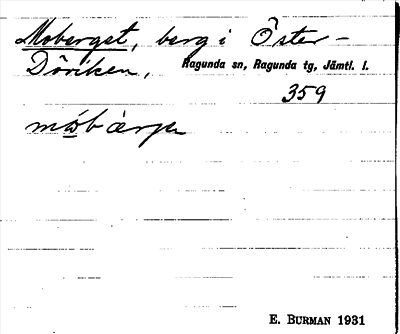 Moberget, berg i Öster-
Döviken, Ragunda sn, Ragunda tg, Jämtl. l.
359
E. BURMAN 1931